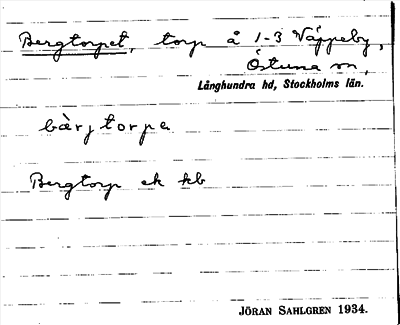 Bergtorpet, torp å 1-3 Väppeby,
Östuna sn,
Långhundra hd, Stockholms län.
bærjtorpe
Bergtorp ek kb
JÖRAN SAHLGREN 1934.